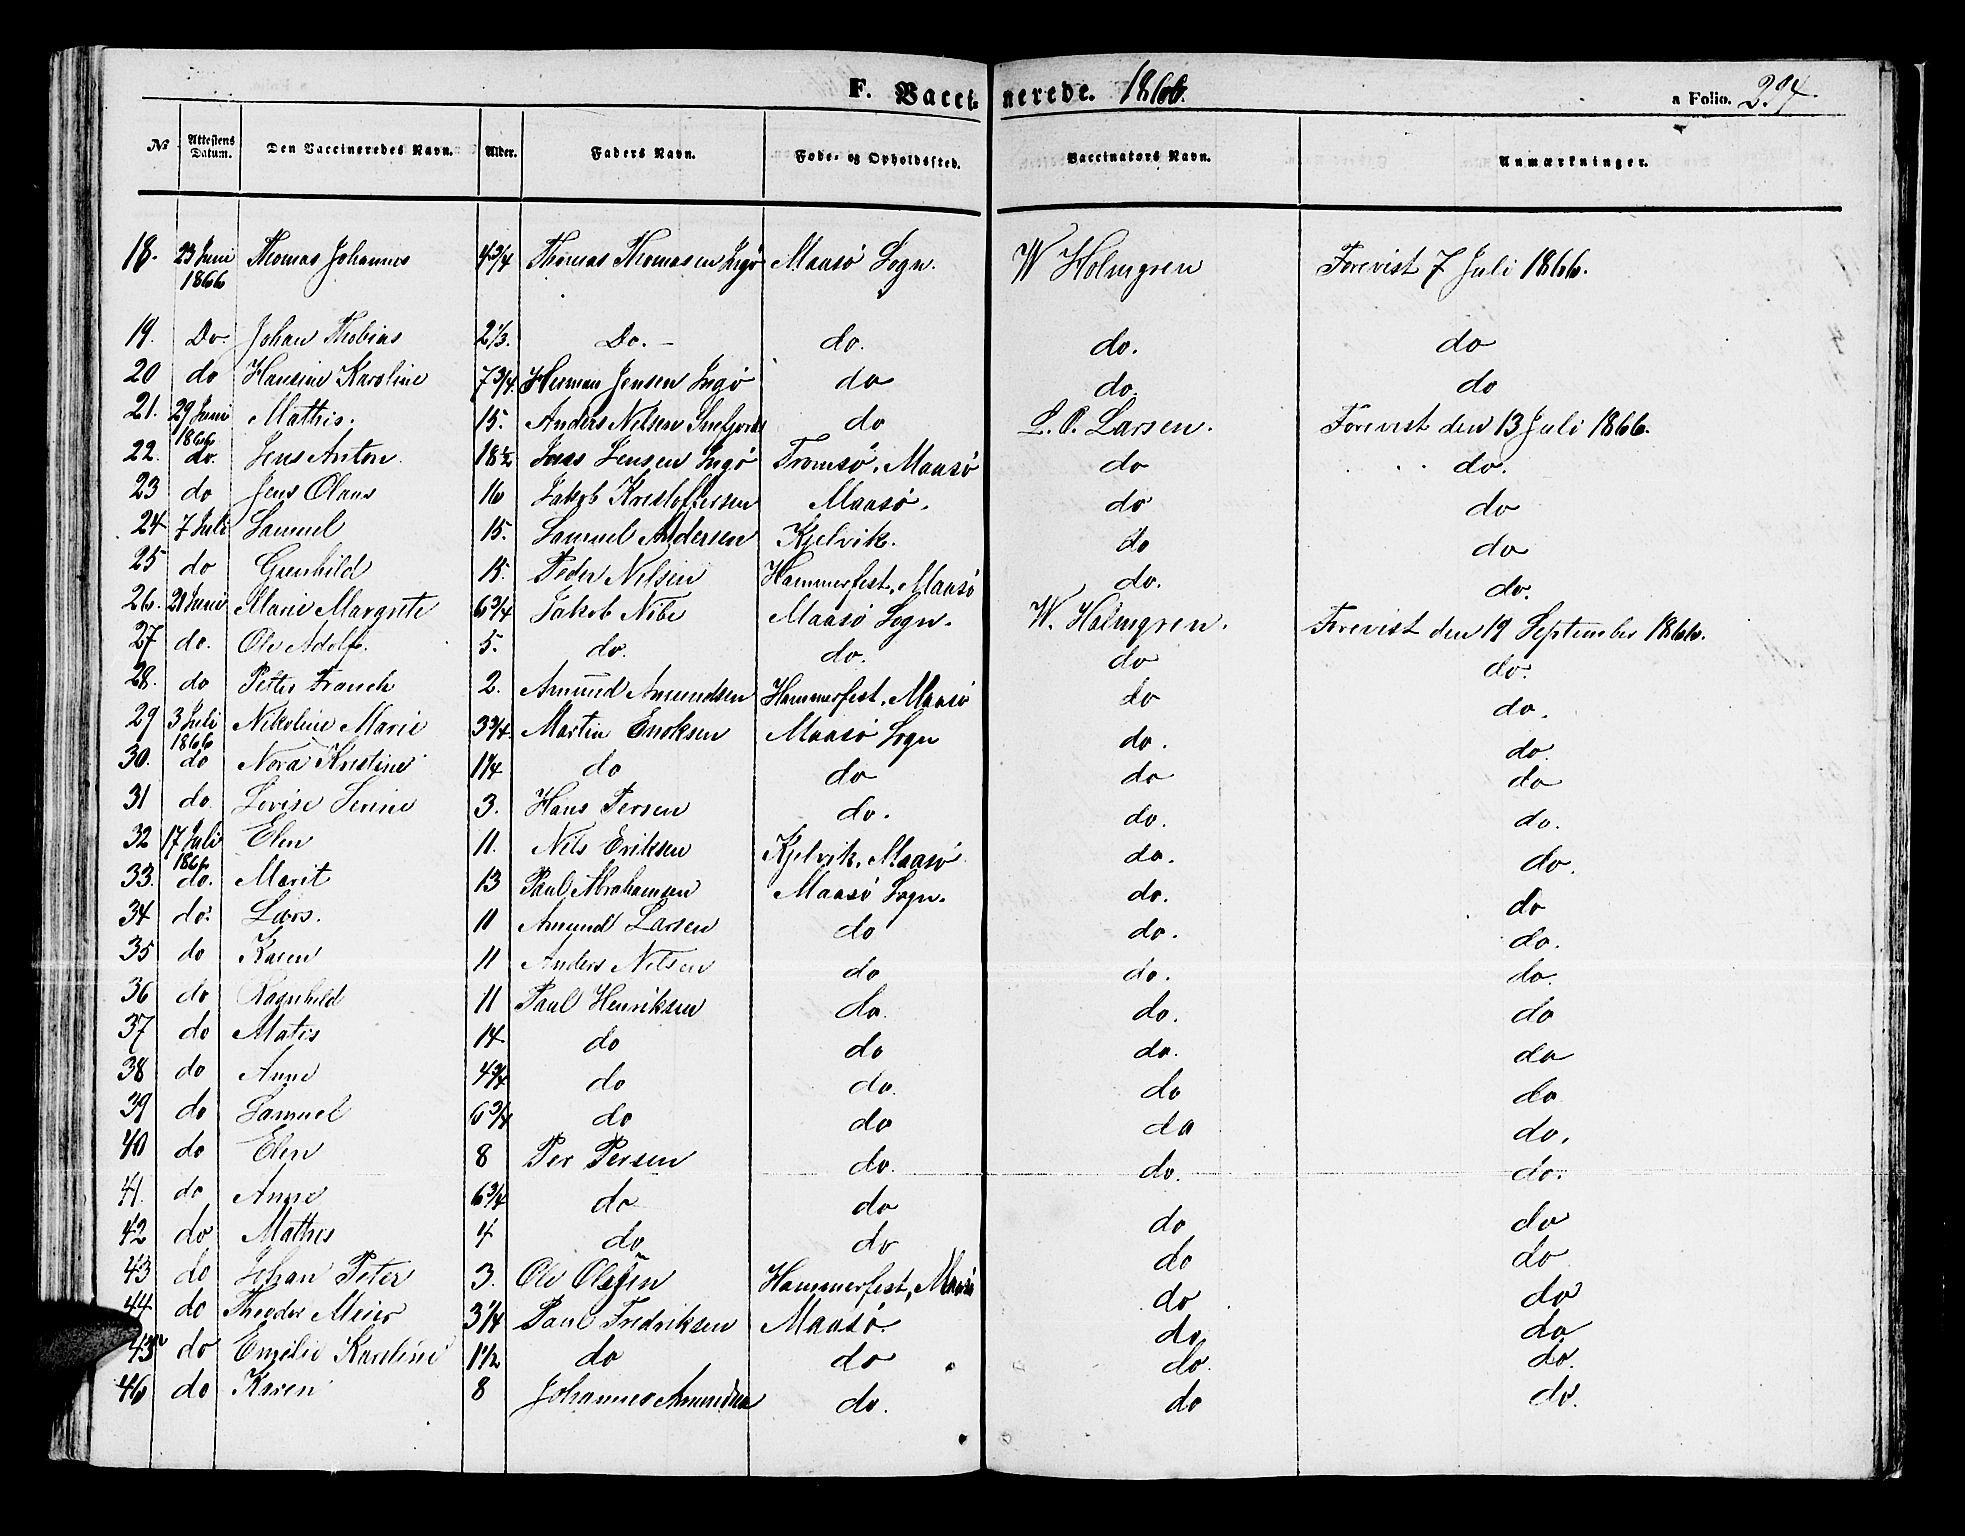 F. Vaccinerede. 1866. a Folio. 297.
№ Attestens Datum. Den Vaccineredes Navn. Alder. Faders Navn. Føde- og Opholdssted. Vaccinators Navn. Anmærkninger.
18. 23 Juni 1866 Thomas Johannes 4 3/4 Thomas Thomasen Ingø Maasø Sogn. W Holmgren Forevist 7 Juli 1866.
19. Do Johan Thobias 2 1/3. Do. – do. do. do
20 do Hansine Karoline 7 3/4. Herman Jensen Ingø do do. do
21. 29 Juni 1866 Mathis. 15. Anders Nilsen Snefjord do L. O. Larsen. Forevist den 13 Juli 1866.
22. do. Jens Anton 18 1/2 Jens Jensen Ingø Tromsø, Maasø do do.
23 do Jens Olaus 16 Jakob Kristoffersen Maasø. do do
24 7 Juli Samuel 15. Samuel Andersen Kjelvik. do do
25 do Grenhild 15. Peder Nilsen Hammerfest, Maasø do. do.
26. 21 Juni Marie Margrete 6 3/4 Jakob Nibe Maasø Sogn. W. Holmgren. Forevist den 19 September 1866.
27 do. Ole Adolf. 5. do. do. do do.
28. do Petter Franch 2. Amund Amundsen Hammerfest, Maasø do do.
29 3 Juli 1866 Nikoline Marie 3 3/4. Martin Enoksen Maasø Sogn do. do.
30. do Nora Kristine 1 1/4 do do do do
31 do. Lovise Serine 3. Hans Persen do. do. do.
32 17 Juli 1866 Elen 11. Nils Eriksen Kjelvik, Maasø do. do.
33. do. Marit 13 Paul Abrahamsen Maasø Sogn. do. do
34 do. Lars. 11 Amund Larsen do do. do.
35 do Karen 11 Anders Nilsen do do. do.
36 do Ragnhild 11 Paul Henriksen do. do. do
37 do Matis 14 do do do. do
38 do Anne 4 3/4 do do. do do
39 do Samuel 6 3/4 do do do do.
40 do Elen 8 Per Persen do. do. do.
41. do Anne 6 3/4 do do do do
42 do Mathis 4 do do do do
43 do Johan Peter 3. Ole Olsen Hammerfest, Maasø do do
44 do Theodor Meier 3 1/4 Paul Fredriksen Maasø. do, do
45 do Emelie Karoline 1 1/2 do do do. do.
46 do Karen 8 Johannes Amundsen do. do do.